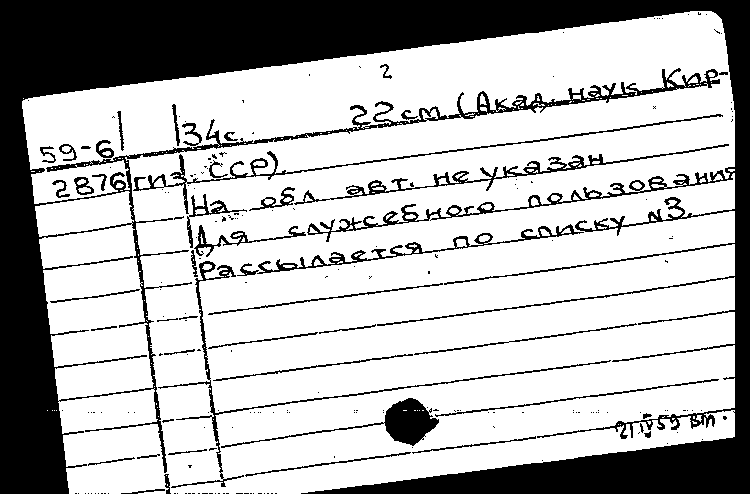 2
59-6 34с. 22см (Акад. наук Кир-
2876 гиз. ССР).
На обл авт. не указан
Для служебного пользования
Рассылается по списку №3.
21 IV 59 вт.